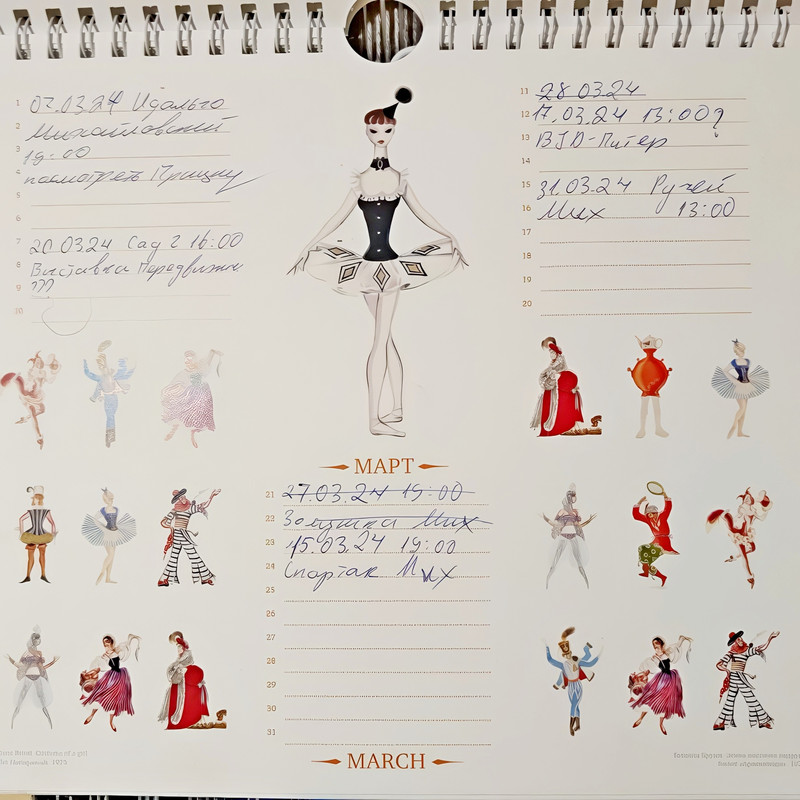 1 02.03.24 Идальго
2 Михайловский
3 19:00
4 посмотреть Принцип
5
6
7 20 03.24 Сад 2 16:00
8 Выставка Передвижни
9 ???
10
11 28 03.24
12 17.03.24 13:00?
13 ВТО-Питер
14
15 31.03.24 Ручей
16 Мих 13:00
17
18
19
20
МАРТ
21 27.03.24 19:00
22 Золушка Мих
23 15.03.24 19:00
24 Спартак Мих
25
26
27
28
29
30
31
MARCH